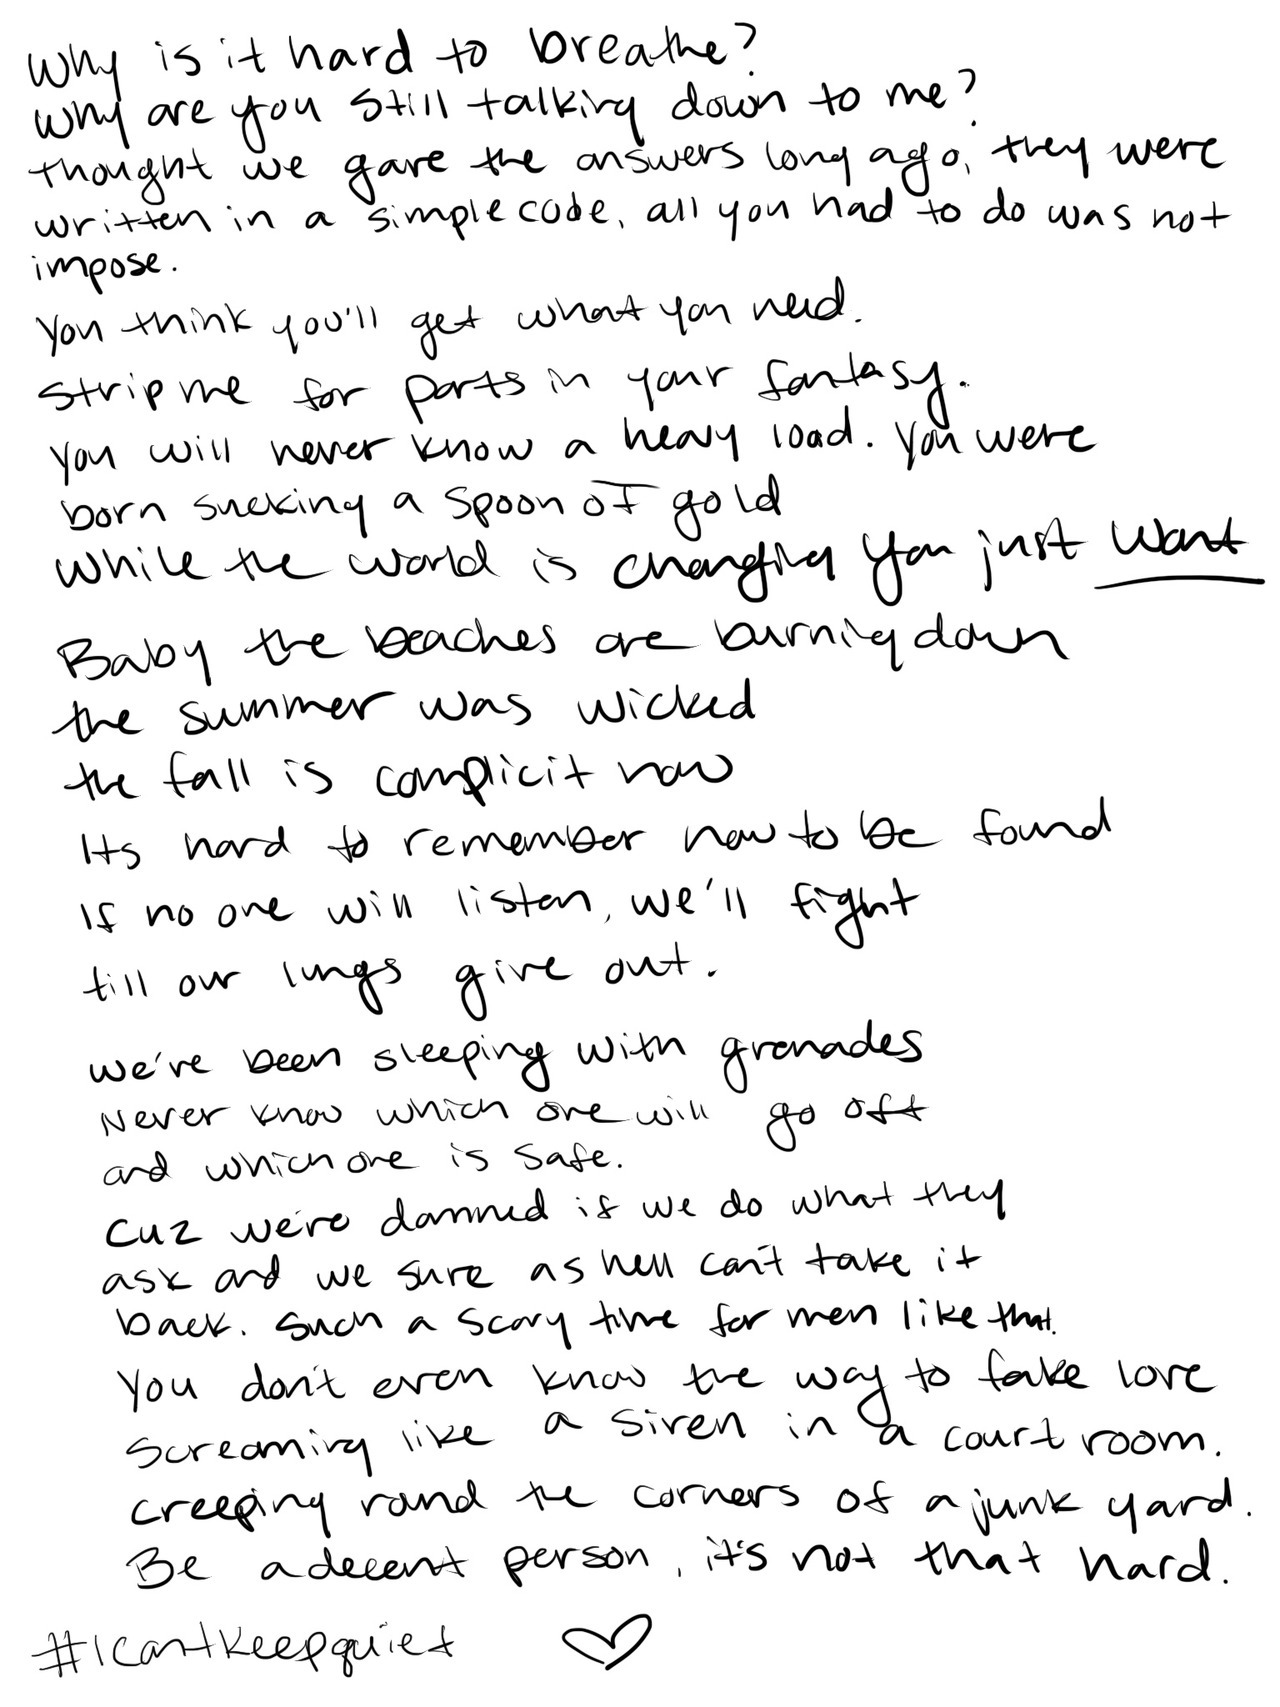 Why is it hard to breathe?
Why are you still talking down to me?
thought we gave the answers long ago, they were
written in a simple code, all you had to do was not
impose.
You think you'll get what you need.
Strip me for parts in your fantasy.
You will never know a heavy load. You were
born sucking a spoon of gold
While the world is changing you just want
Baby the beaches are burning down
the summer was wicked
the fall is complicit now
Its hard to remember how to be found
If no one will listen, we'll fight
till our lungs give out.
we've been sleeping with grenades
Never know which one will go off
and which one is safe.
Cuz we're damned if we do what they
ask and we sure as hell can't take it
back. Such a scary time for men like that.
You don't even know the way to fake love
Screaming like a siren in a court room.
Creeping round the corners of a junk yard.
Be a decent person, it's not that hard.
#Icantkeepquiet